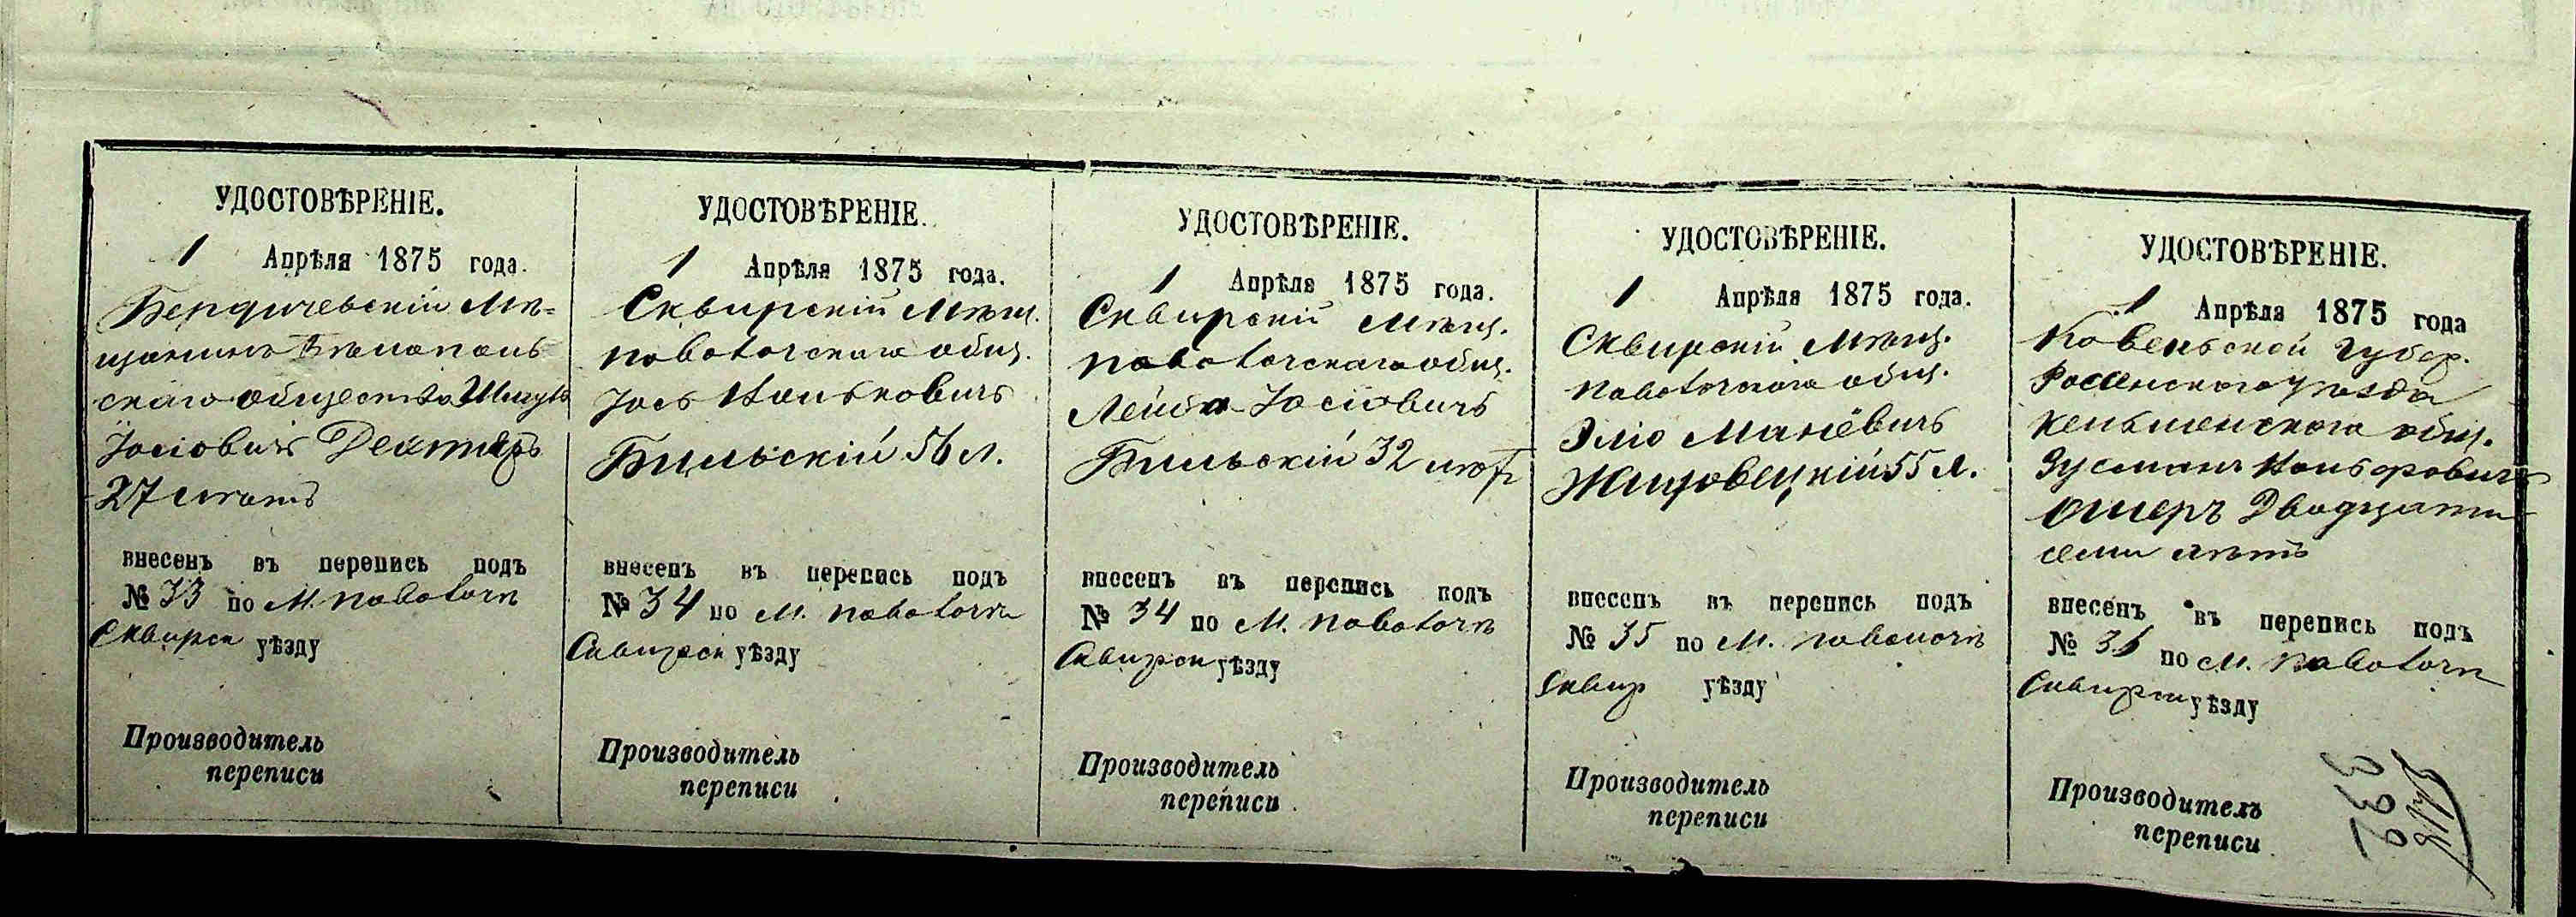 УДОСТОВѢРЕНІЕ.
1 Апрѣля 1875 года.
Бердичевскій мѣ-
щанинъ Бѣлополь
скаго общества
Іосіовичъ Дехтяръ
27 лѣтъ
внесенъ въ перепись подъ
№ 33 по М. Паволочѣ
Сквирск уѣзду
Производитель
переписи
УДОСТОВѢРЕНІЕ.
1 Апрѣля 1875 года.
Сквирскій мѣщ.
Паволочскаго общ.
Іось
Бильскій 56 л.
внесенъ въ перепись подъ
№ 34 по М. Паволочѣ
Сквирск уѣзду
Производитель
переписи
УДОСТОВѢРЕНІЕ.
1 Апрѣля 1875 года.
Сквирскій мѣщ.
Паволочскаго общ.
Лейба Іосіовичъ
Бильскій 32 лѣтъ
внесенъ въ перепись подъ
№ 34 по М. Паволочѣ
Сквирск уѣзду
Производитель
переписи
УДОСТОВѢРЕНІЕ.
1 Апрѣля 1875 года.
Сквирскій мѣщ.
Паволочскаго общ.
Эліо
55 л.
внесенъ въ перепись подъ
№ 35 по М. Паволочѣ
Сквир уѣзду
Производитель
переписи
УДОСТОВѢРЕНІЕ.
1 Апрѣля 1875 года
Ковеньской губер.
Росіенскаго уѣзда
общ.
Зусманъ
Ошеръ Двадцати
семи лѣтъ
внесенъ въ перепись подъ
№ 36 по М. Паволочѣ
Сквирск уѣзду
Производитель
переписи
392